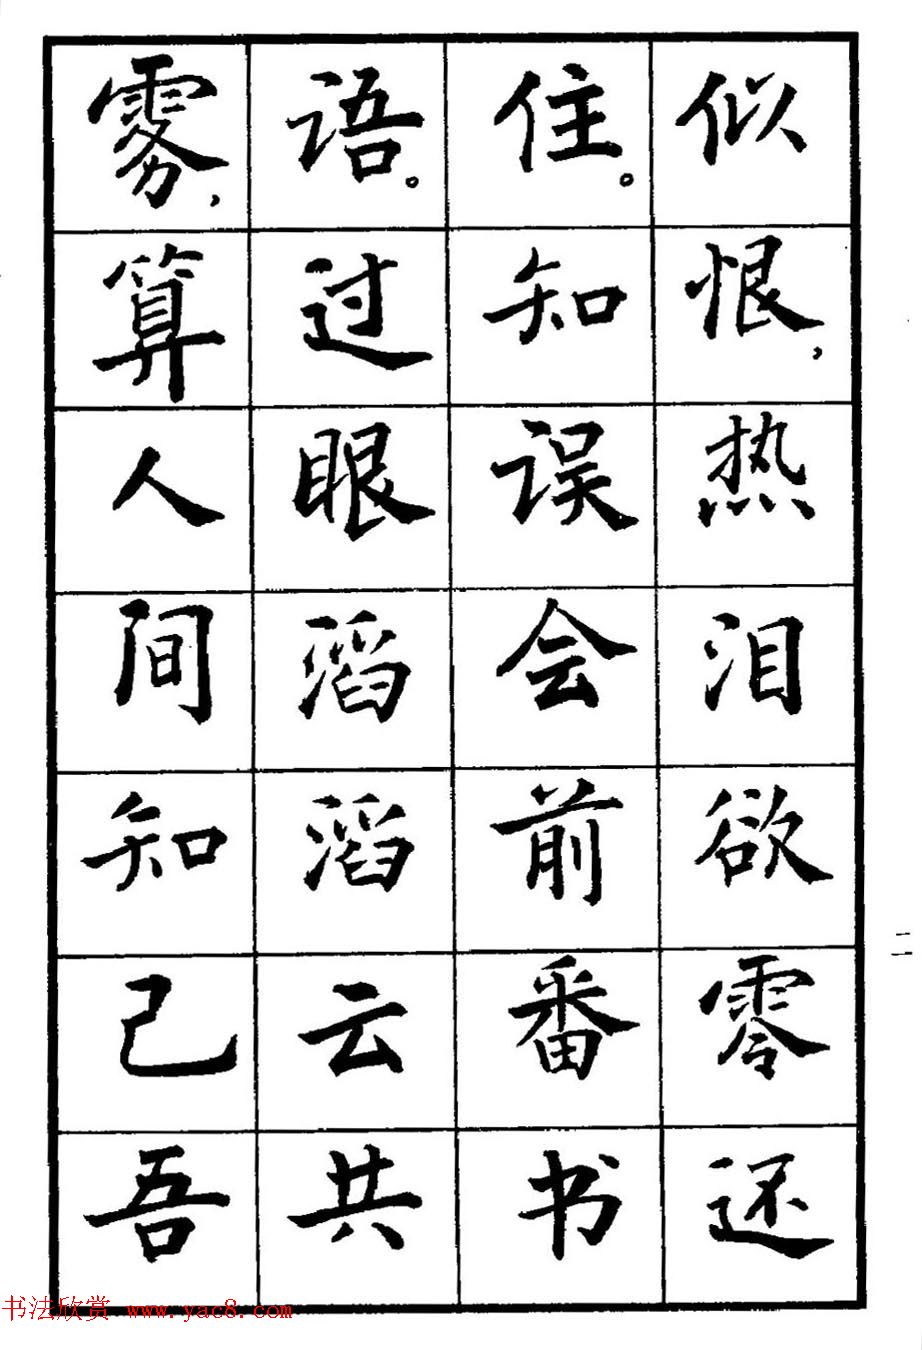 似恨，热泪欲零还
住。知误会前番书
语。过眼滔滔云共
雾，算人间知己吾
二一
书法欣赏 www.yac8.com